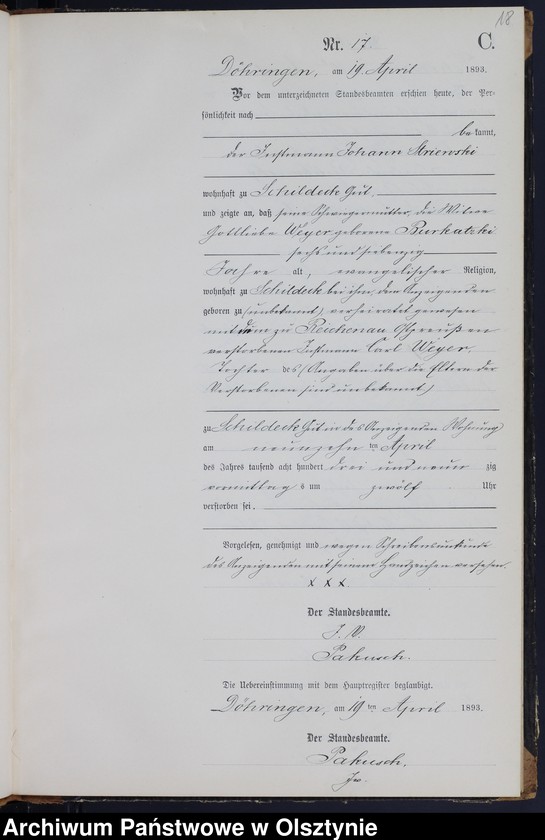 18
Nr. 17. C.
Döhringen, am 19. April 1893.
Vor dem unterzeichneten Standesbeamten erschien heute, der Per-
sönlichkeit nach
bekannt,
der Instmann Johann Striewski
wohnhaft zu Schildeck Gut
und zeigte an, daß seine Schwiegermutter, die Witwe
Gottliebe Weyer geborene Burkatzki
sechs und siebenzig
Jahre alt, evangelischer Religion,
wohnhaft zu Schildeck bei ihm, dem Anzeigenden
geboren zu (unbekannt) verheiratet gewesen
mit dem zu Reichenau Ostpreußen
verstorbenen Instmann Carl Weyer.
Tochter des (Angaben über die Eltern der
Verstorbenen sind unbekannt)
zu Schildeck Gut in des Anzeigenden Wohnung
am neunzehn ten April
des Jahres tausend acht hundert drei und neun zig
vormittags um zwölf Uhr
verstorben sei.
Vorgelesen, genehmigt und wegen Schreibensunkunde
des Anzeigenden mit seinem Handzeichen versehen.
x x x
Der Standesbeamte.
J. V.
Pakusch.
Die Uebereinstimmung mit dem Hauptregister beglaubigt.
Döhringen, am 19 ten April 1893.
Der Standesbeamte.
Pakusch.
Archiwum Państwowe w Olsztynie